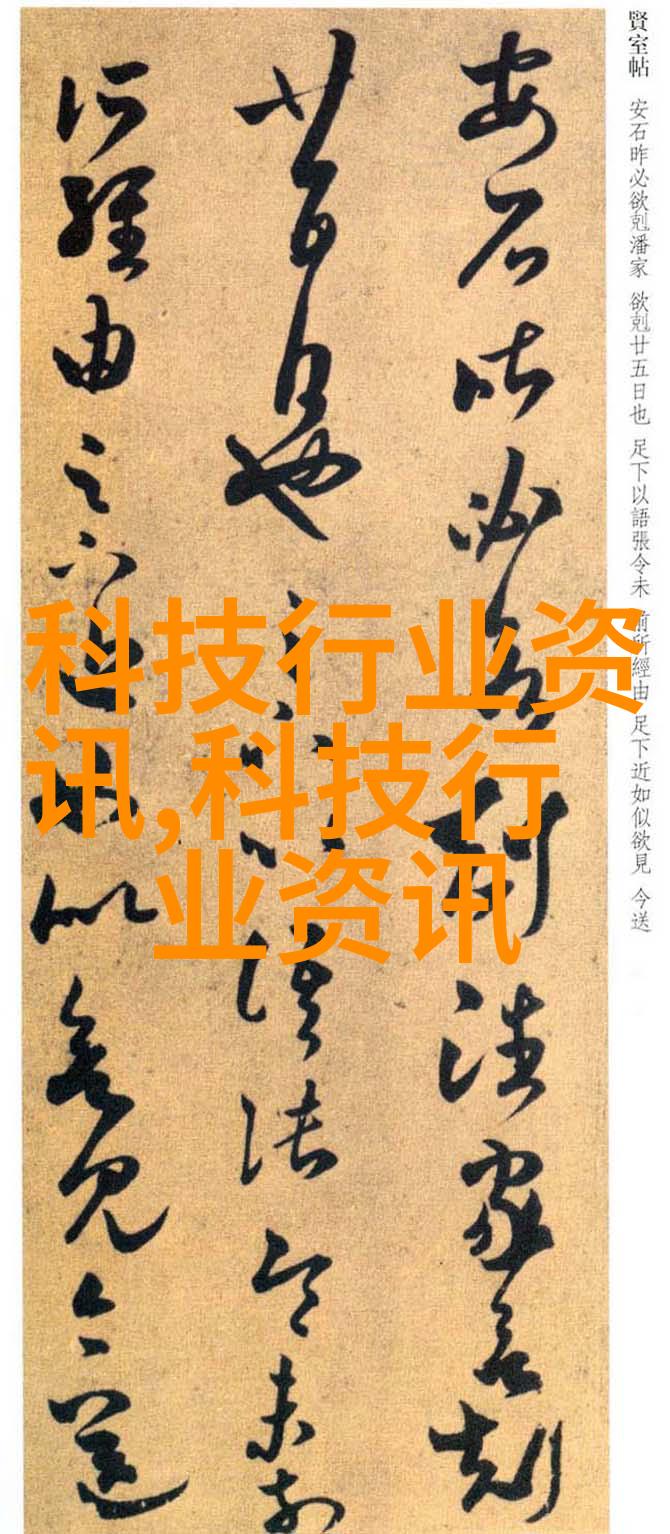 賢室帖 安石昨必欲剋潘家 欲剋廿五日也 足下以語張令未 前所經由足下近如似欲見 今送
安石昨必欲剋潘家欲剋
廿五日也足下以語張令未前
所經由足下近如似欲見今送
科技行业资
讯,科技行
业资讯